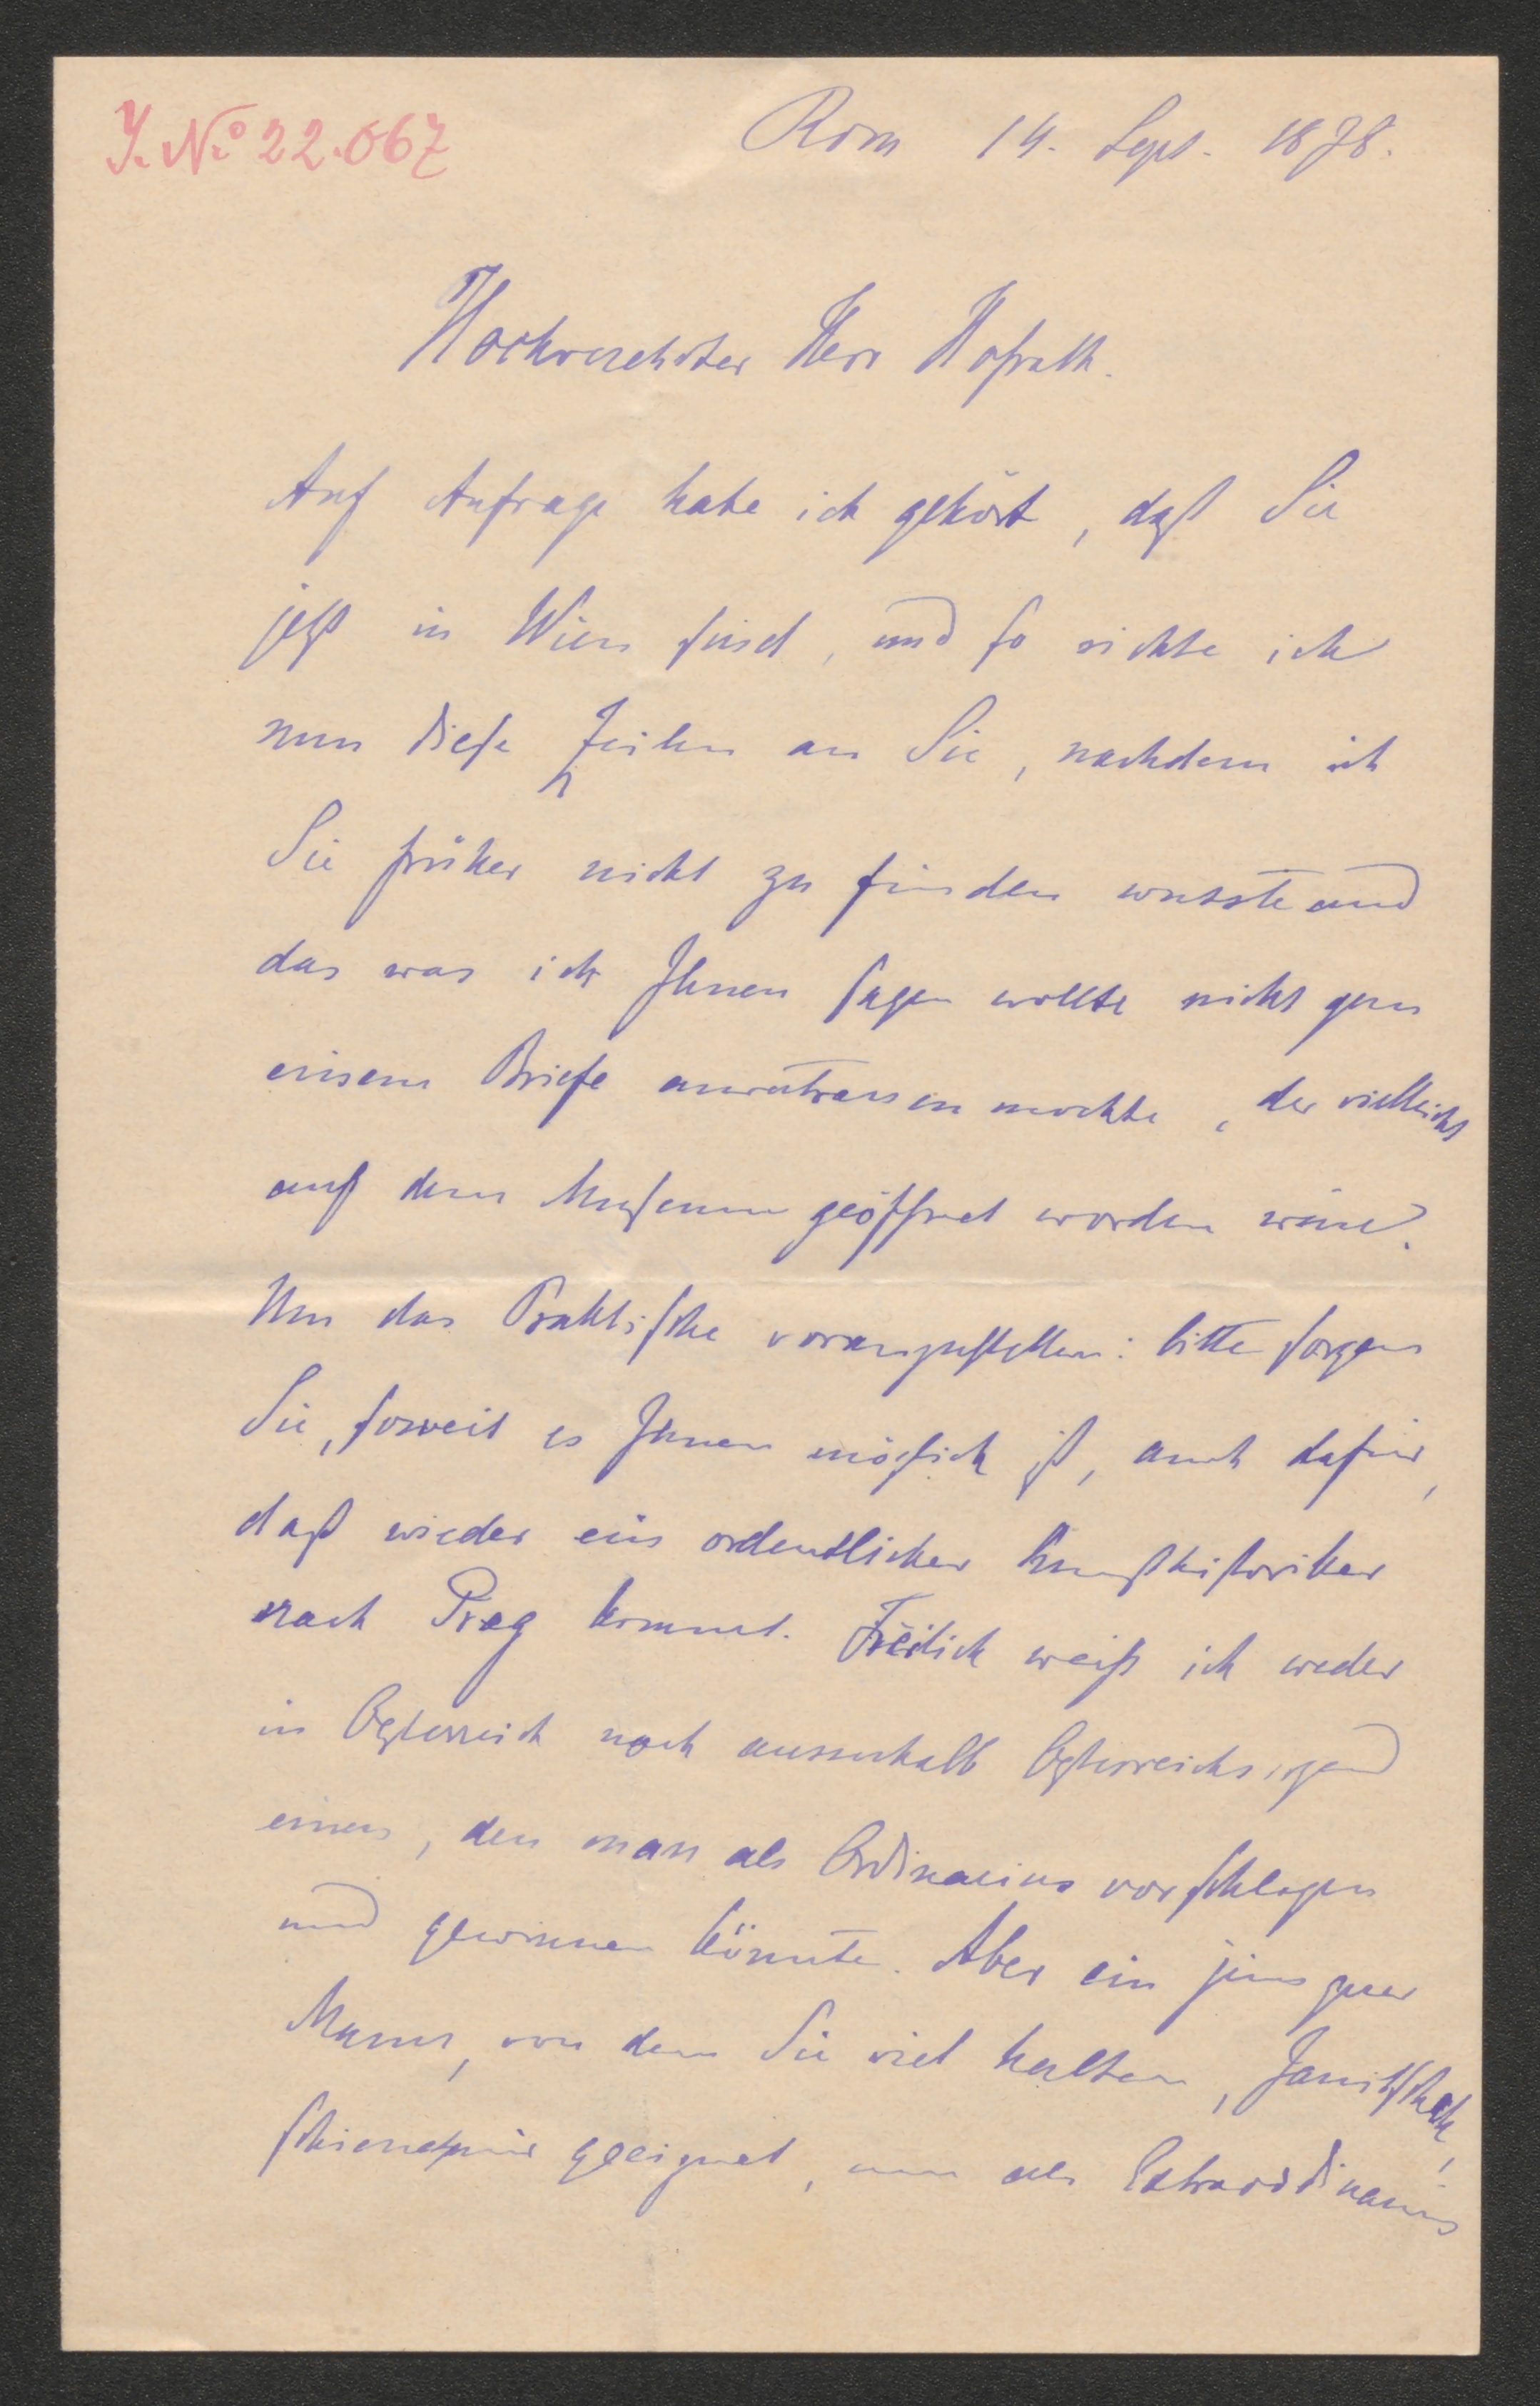 J. No 22.067
Rom 14. Sept. 1878.
Hochverehrter Herr Hofrath.
Auf Anfrage habe ich gehört, daß Sie
jetzt in Wien sind, und so richte ich
nun diese Zeilen an Sie, nachdem ich
Sie früher nicht zu finden wusste und
das was ich Ihnen sagen wollte nicht gern
einem Briefe anvertrauen mochte, der vielleicht
auf dem Museum geöffnet worden wäre.
Um das Praktische voranzustellen: bitte sorgen
Sie, soweit es Ihnen möglich ist, auch dafür,
daß wieder ein ordentlicher Kunsthistoriker
nach Prag kommt. Freilich weiß ich weder
in Österreich noch ausserhalb Österreichs irgend
einen, den man als Ordinarius vorschlagen
und gewinnen könnte. Aber ein jüngerer
Mann, von dem Sie viel halten, Janitschek,
schiene mir geeignet, um als Extraordinarius